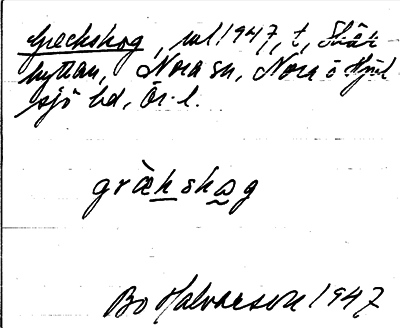 Greckskog, ul 1947, t, Skär
hyttan, Nora sn, Nora o Hjul
sjö bd, Ör. l.
gräkskog
Bo Halvarson 1947